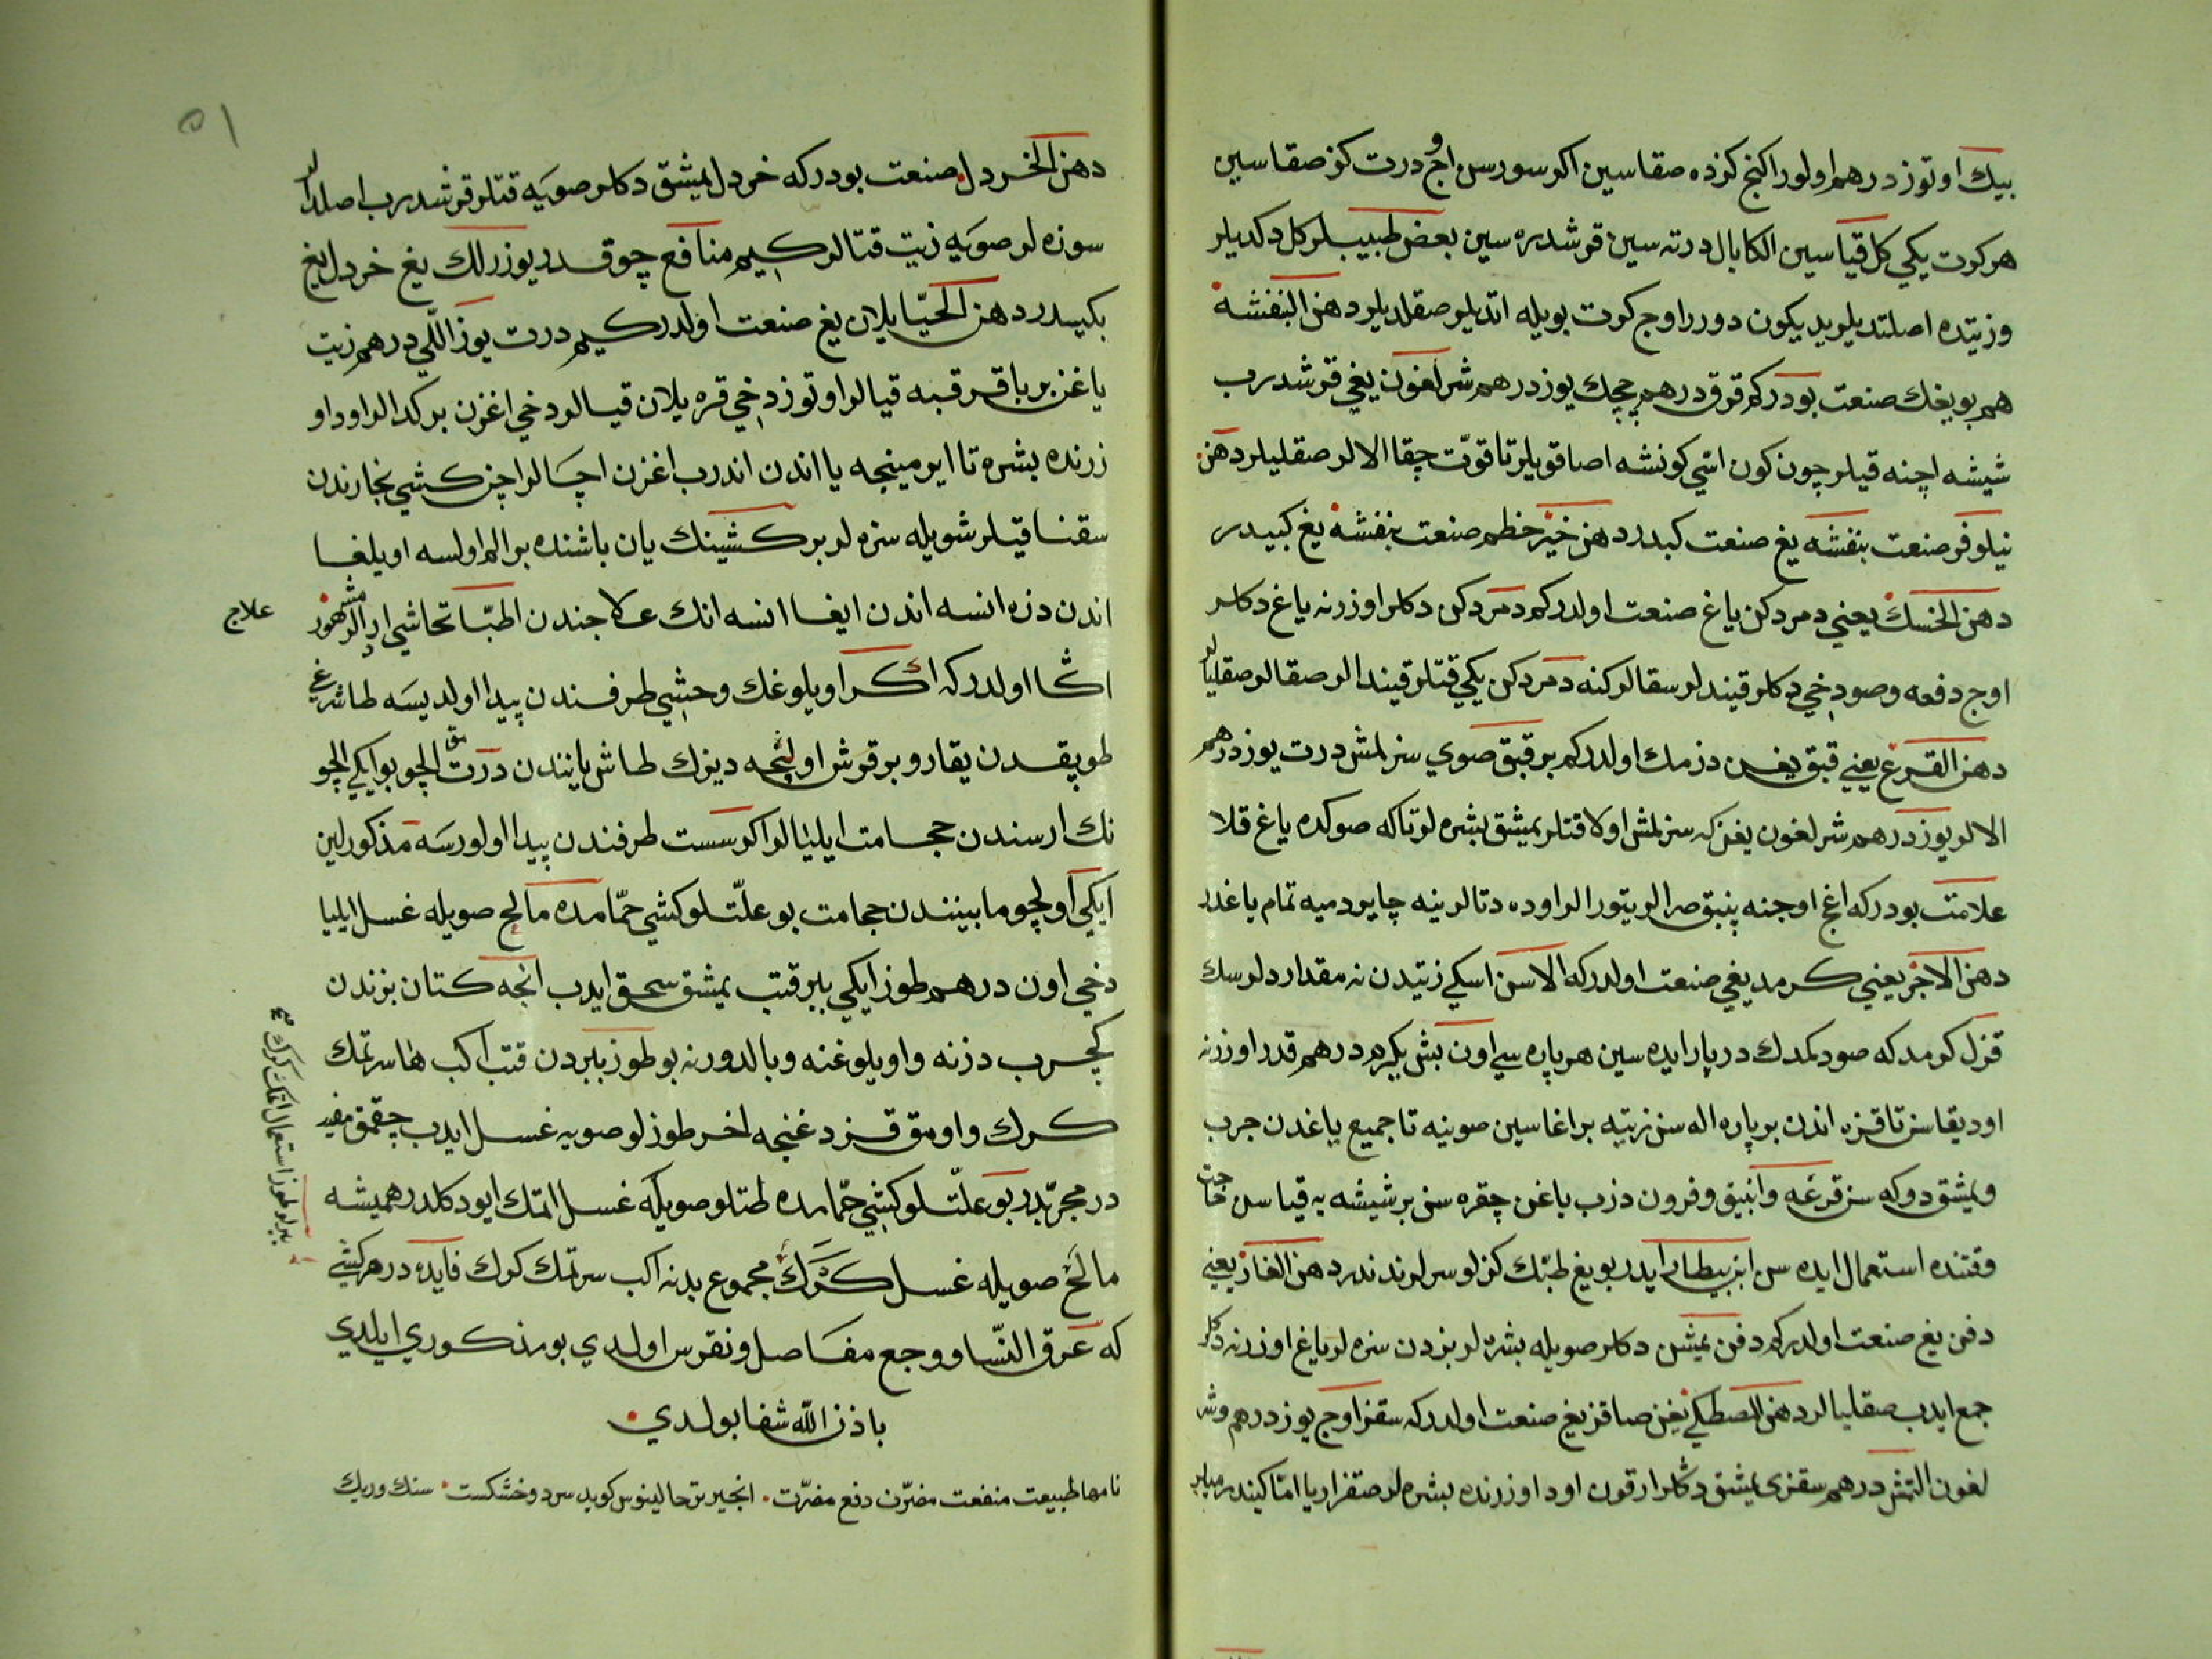 بيك اوتوز درهم اولور اكنج كزده صقاسين اكر سورسن اوج درت كز صقاسين
هر كرت يكي كل قياسين الكا بال درته سين قرشدره سين بعض طبيبلر كل دكديلر
وزيتده اصلتديلر يديكون دورر اوج كرت بويله اتديلر صقلديلر دهن البنفشه
هم بو يغك صنعت بودركم قرق درهم چچك يوز درهم شرلغون يغي قرشدرب
شيشه اچنه قيلر چون كون اسّي كونشه اصا قويلر تا قوّت چقا الالر صقليلر دهن
نيلوفر صنعت بنفشه يغ صنعت كبدر دهن خيز خطم صنعت بنفشه يغ كبيدر
دهن الخسك يعني دمر دكن ياغ صنعت اولدركم دمر دكن دكلر اوزرنه ياغ دكلر
اوج دفعه وصو دخي دكلر قيندلر سقالر كنه دمر دكن يكي قتلر قيندالر صقالر صقليالر
دهن القرع يعني قبق يغن دزمك اولدركم بر قبق صوي سزلمش درت يوز درهم
الالر يوز درهم شرلغون يغن كه سزلمش اولا قتلر يمشق بشره لر تاكه صوكده ياغ قلا
علامت بودركه اغج اوجنه پنبق صرالر يتورالر اوده دتالر ينه چايرد ميه تمام ياغدر
دهن الاجر يعني كرمد يغي صنعت اولدركه الاسن اسكي زيتدن نه مقدار دلرسك
قزل كرمد كه صو دكمدك در پار ايده سين هر پاره سي اون بش يكرم درهم قدر اوزرنه
اود يقاسن تا قزه اندن بر پاره اله سن زيتيه براغاسين صوينه تا جميع ياغدن جرب
ويمشق دوكه سن قرغه وانبيق وفرون دزب ياغن چقره سن بر شيشه يه قياسن حاجت
وقتنده استعمال ايده سن ابن بيطار ايدر بو يغ طبّك كزلو سرلرندندر دهن الغار يعني
دفن يغ صنعت اولدركم دفن يمشن دكلر صويله بشره لر بزدن سزه لر ياغ اوزرنه دكلر
جمع ايدب صقليالر دهن المصطكي يغن صاقز يغ صنعت اولدركه سقز اوج يوز درهم وشر
لغون التمش درهم سقزي يمشق دكلر ارقون اود اوزرنده بشره لر صقزاريا امّا كيندر
دهن الخردل صنعت بودركه خردل يمشق دكلر صويه قتلر قرشدرب اصلدالر
سوزه لر صويه زيت قتالر كيم منافع چوقدر يوزرلك يغ خردل يغ
بكيدر دهن الحيّا يلان يغ صنعت اولدركيم درت يوز اللّي درهم زيت
ياغن بر باقر قبه قيالر اوتوز دخي قره يلان قيالر دخي اغزن بركدالر اود او
زرنده بشره تا ايرمينجه يا اندن اندرب اغزن اچالر اچن كشي بخارندن
سقنا قيلر شويله سزه لر بر كشينك يان باشنده بر الم اولسه اويلغا
اندن دزه انسه اندن ايغا انسه انك علاجندن اطبّا تحاشي ايدر المشهور
علاج
اڭا اولدركه اكر اويلوغك وحشي طرفندن پيدا اولديسه طاشرغي
طوپقدن يقارو بر قرش اولنجه ديزك طاش يانندن درت الچو بو ايكي الچو
نك ارسندن حجامت ايليالر اكر سست طرفندن پيدا اولورسه مذكورلين
ايكي اولچو مابيننندن حجامت بو علّتلو كشي حمّامده مالح صويله غسل ايليا
دخي اون درهم طوز ايكي ببر قتب يمشق سحق ايدب انجه كتان بزندن
كچرب دزنه واويلوغنه وبالدورنه بو طوز ببردن قتب اكب ها سرتمك
كرك واومق قزدغنجه اخر طوز لو صويه غسل ايدب چقمق مفيد
در مجرّبدر بو علّتلو كشي حمّامده طتلو صويله غسل اتمك ايو دكلدر هميشه
مالح صويله غسل كرك مجموع بدنه اكب سرتمك كرك فايده در هر كشي
كه عرق النّسا ووجع مفاصل ونقرس اولدي بو مذكوري ايلدي
باذن الله شفا بولدي
نامها طبيعت منفعت مضرّت دفع مضرّت انجير تر جالينوس كويد سرد وخشكست سنك وريك
ببرلو طوز استعمال اتمك كرك
٥١